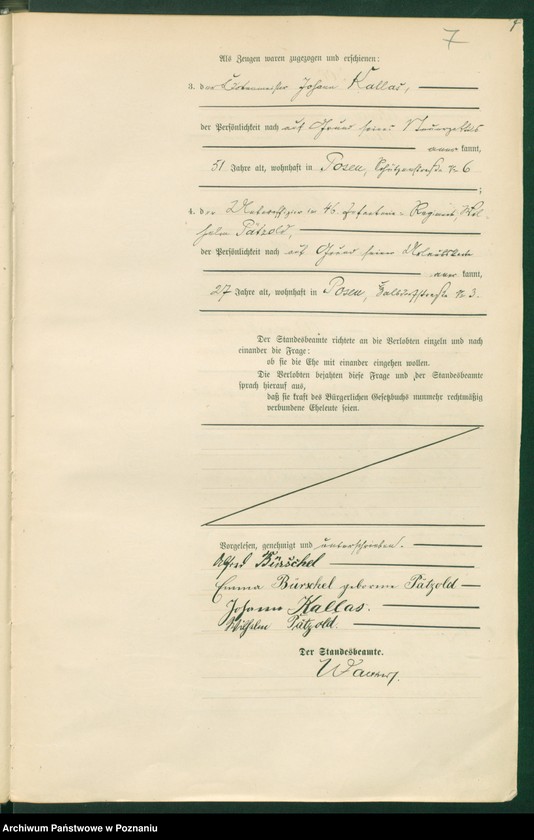 7
Als Zeugen waren zugezogen und erschienen:
3. der Johann Kallas,
der Persönlichkeit nach auf Grund seines Steuerzettels
anerkannt,
51 Jahre alt, wohnhaft in Posen, Schützenstraße № 6
;
4. der Unteroffizier im 46. Infanterie-Regiment, Wil-
helm Pätzold,
der Persönlichkeit nach auf Grund seiner
anerkannt,
27 Jahre alt, wohnhaft in Posen, № 3.
Der Standesbeamte richtete an die Verlobten einzeln und nach
einander die Frage:
ob sie die Ehe mit einander eingehen wollen.
Die Verlobten bejahten diese Frage und der Standesbeamte
sprach hierauf aus,
daß sie kraft des Bürgerlichen Gesetzbuchs nunmehr rechtmäßig
verbundene Eheleute seien.
Vorgelesen, genehmigt und unterschrieben.
Alfred Bürschel
Emma Bürschel geborene Pätzold
Johann Kallas.
Wilhelm Pätzold.
Der Standesbeamte.
Archiwum Państwowe w Poznaniu